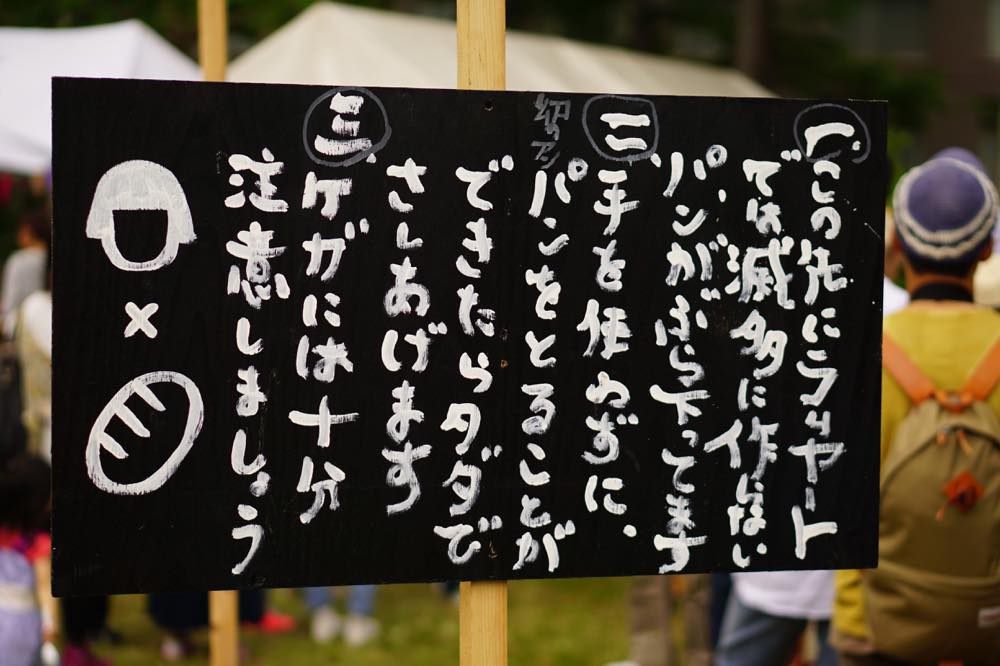 一、この先にラリヤート
では滅多に作ない
パンがぶら下ってます
二、手を使わずに、
パンをとることが
できたらタダで
さしあげます
三、ケガには十分
注意しましょう
×